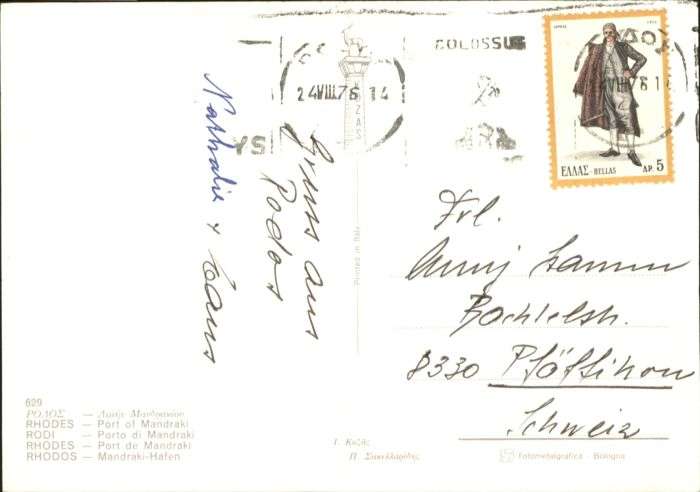 COLOSSUS
24 VIII 76 14
ΕΛΛΑΣ-HELLAS ΔΡ. 5
Gruss aus
Rodos
Nathalie +
Printed in Italy
Frl.
Bachtelstr.
8330 Pfäffikon
Schweiz
629
ΡΟΔΟΣ — Λιμήν Μανδρακίου
RHODES — Port of Mandraki
RODI — Porto di Mandraki
RHODES — Port de Mandraki
RHODOS — Mandraki-Hafen
Fotometalgrafica - Bologna